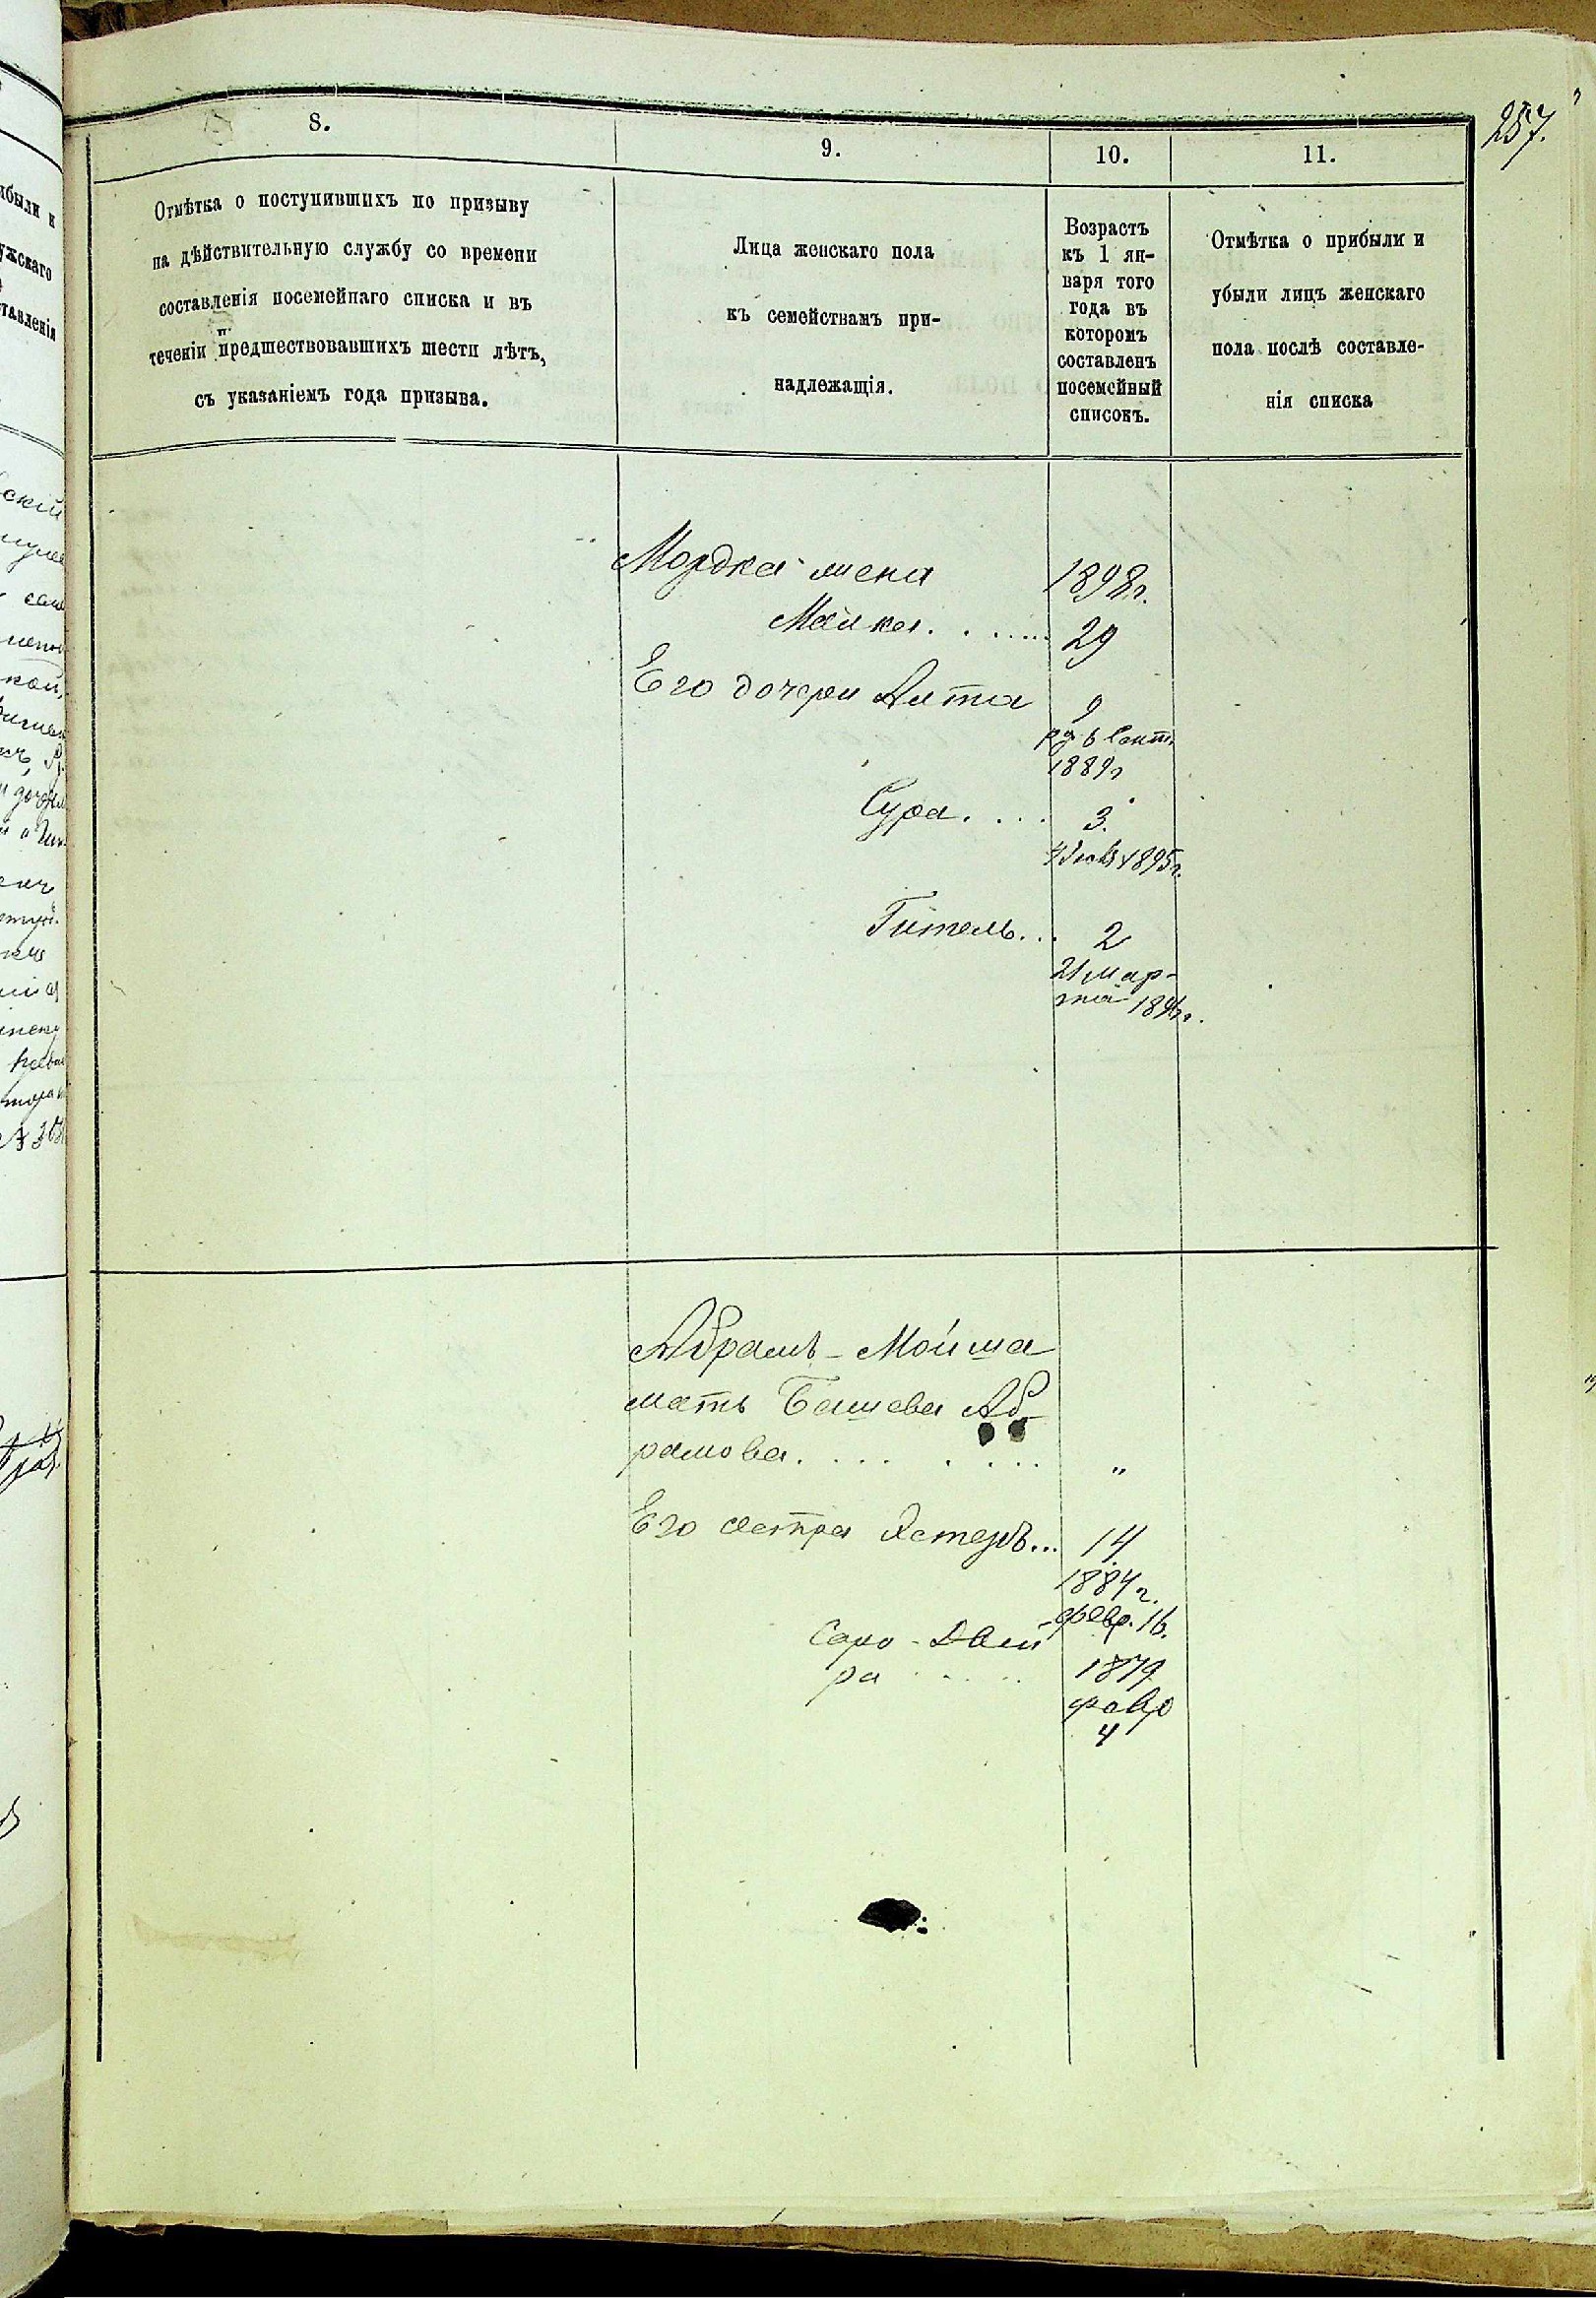 257.
8.
9.
10.
11.
Отмѣтка о поступившихъ по призыву
на дѣйствительную службу со времени
составленія посемейнаго списка и въ
теченіи предшествовавшихъ шести лѣтъ,
съ указаніемъ года призыва.
Лица женскаго пола
къ семействамъ при-
надлежащія.
Возрастъ
къ 1 ян-
варя того
года въ
которомъ
составленъ
посемейный
списокъ.
Отмѣтка о прибыли и
убыли лицъ женскаго
пола послѣ составле-
нія списка
Мордка жена 1898г.
Малка. . . . . . 29
Его дочери Алта 9
6 Сент.
1889г
Сура. . . . 3.
1895г.
Гитель... 2
21 мар-
та 189
Абрамъ-Мойша
мать Башева Аб-
рамова. . . . . . . . "
Его сестра Эстеръ... 14
1884г.
февр. 16.
Сора-Двей-
ра . . . . 1879
февр
4